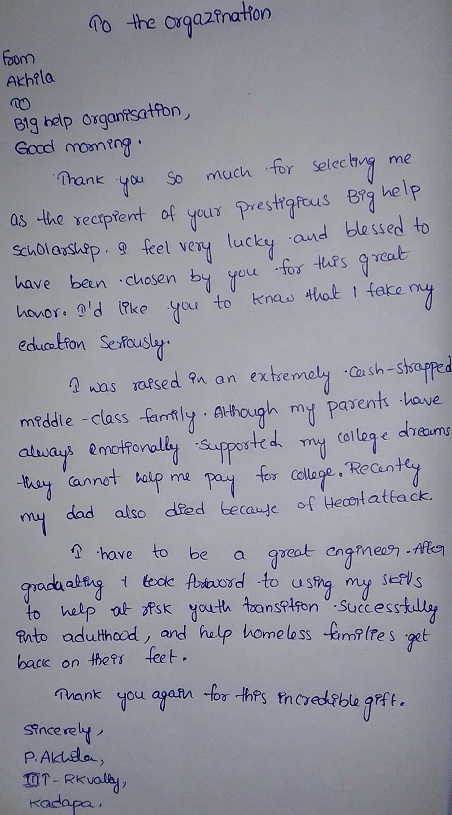 To the orgazination
From
Akhila
To
Big help organisation,
Good morning.
Thank you so much for selecting me
as the recipient of your prestigious Big help
scholarship. I feel very lucky and blessed to
have been chosen by you for this great
honor. I'd like you to know that I take my
education Seriously.
I was raised in an extremely cash-strapped
middle-class family. Although my parents have
always emotionally supported my college dreams
they cannot help me pay for college. Recently
my dad also died because of Heart attack.
I have to be a great engineer. After
graduating I look forword to using my skills
to help at risk youth transition Successfully
into adulthood, and help homeless families get
back on their feet.
Thank you again for this incredible gift.
Sincerely,
P. Akhila,
IIIT-RKvally,
Kadapa.